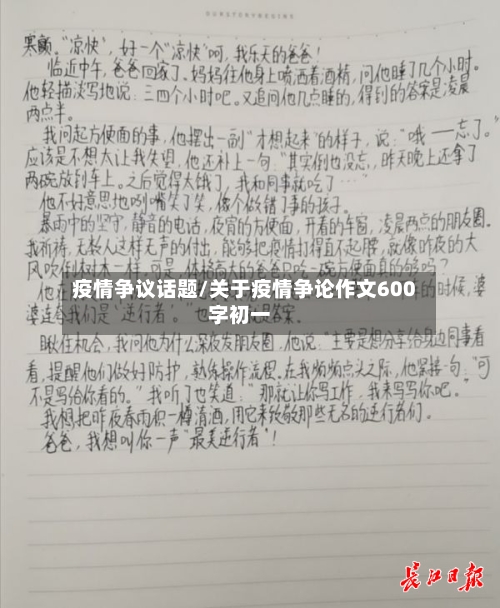 寒颤。“凉快”，好一个“凉快”啊，我乐天的爸爸！
临近中午，爸爸回家了。妈妈往他身上喷洒着酒精，问他睡了几个小时。
他轻描淡写地说：三四个小时吧。又追问他几点睡的，得到的答案是凌晨
两点半。
我问起方便面的事，他摆出一副“才想起来”的样子，说：“哦——忘了。”
应该是不想太让我失望，他还补上一句：“其实倒也没忘，昨天晚上还拿了
两碗放到车上。之后觉得太饿了，我和同事就吃了……”
他不好意思地咧嘴笑了笑，像个做错了事的孩子。
暴雨中的坚守，静音的电话，夜宵的方便面，开着的车窗，凌晨两点的朋友圈。
我祈祷，无数人这样无声的付出，能够把疫情打得直不起腰，就像昨夜的大
风吹倒树木一样。可是，体格高大的爸爸只吃一碗方便面真的够吗？
他在
的时候，婆
婆连
我们是“逆行者。”
答案。
疫情争议话题/关于疫情争论作文600
字初一
瞅住机会，我问他为什么深夜发朋友圈，他说：“主要是想分享给身边同事看
看，提醒他们做好防护，熟练操作流程。在我频频点头之际，他紧接一句：“可
不是写给你看的。”我听了也笑道：“那就让你写工作，我来写写你吧。”
我想把昨夜春雨积一樽清酒，用它来致敬那些无名的逆行者们。
爸爸，我想叫你一声“最美逆行者”！
长江日报